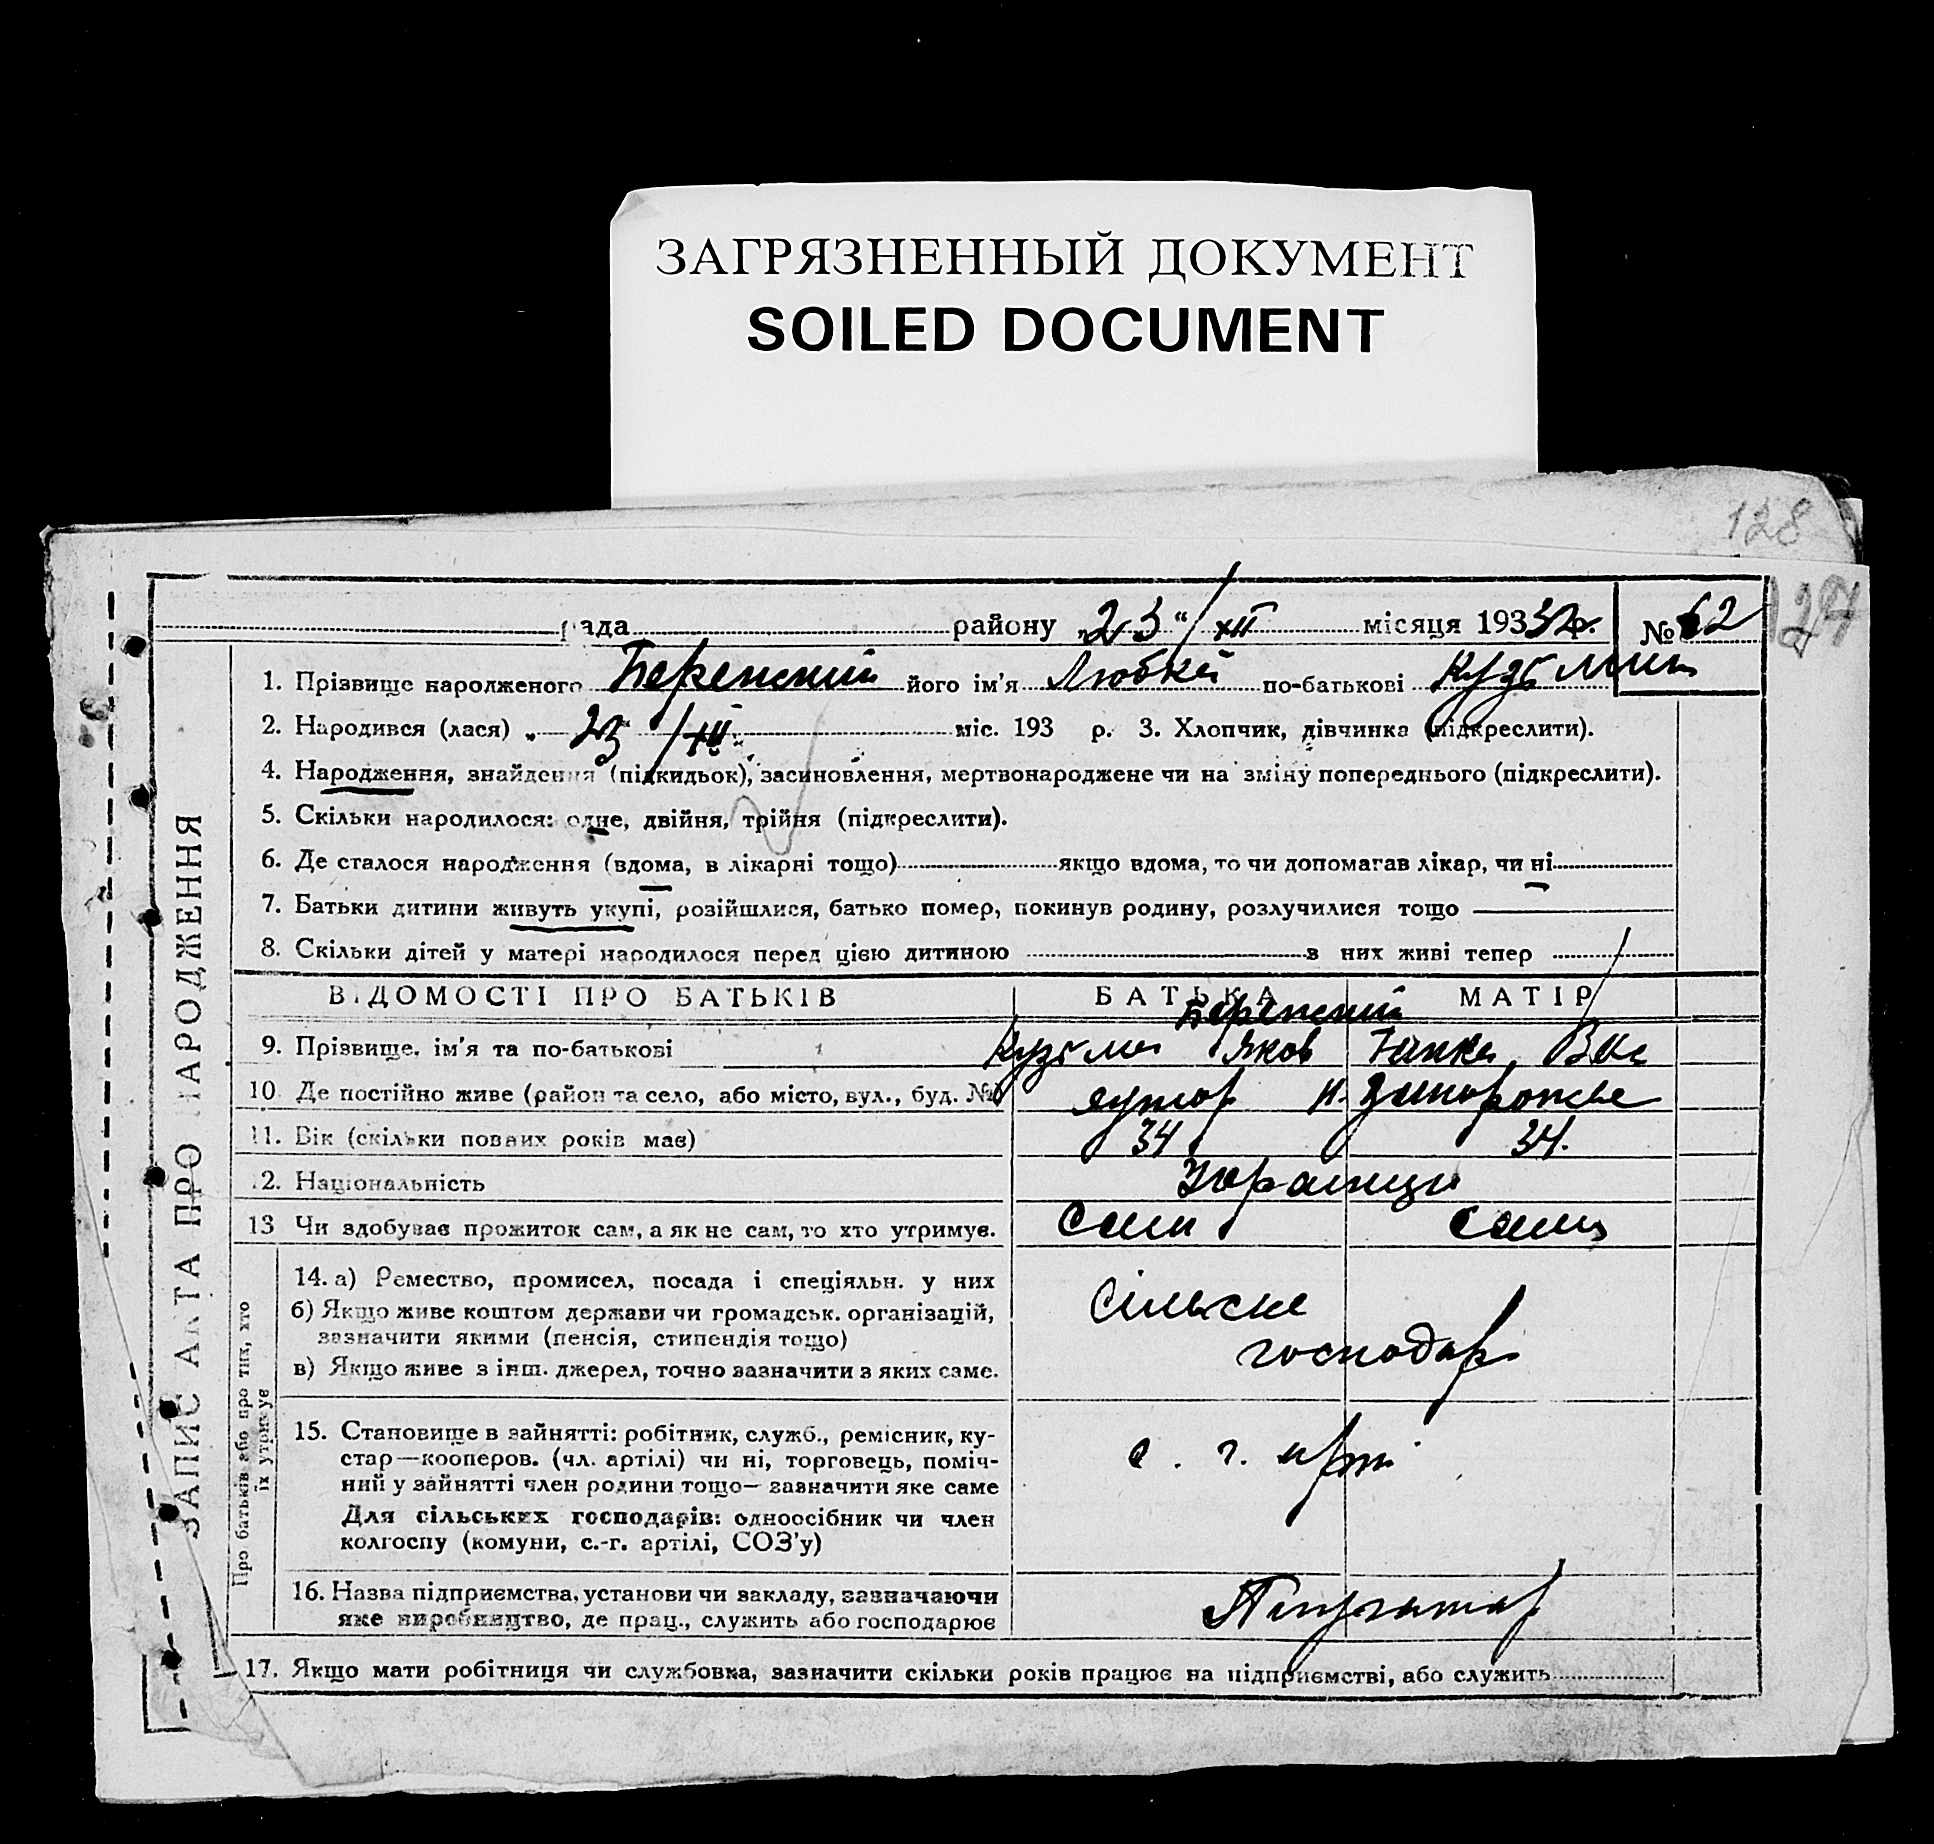 ЗАГРЯЗНЕННЫЙ ДОКУМЕНТ
SOILED DOCUMENT
128
127
ЗАПИС АКТА ПРО НАРОДЖЕННЯ
рада району „23“/XII місяця 193 32 р. № 62
1. Прізвище народженого його ім'я Любка по-батькові
2. Народився (лася) „ 23 /XII міс. 193 р. 3. Хлопчик, дівчинка (підкреслити).
4. Народження, знайдення (підкидьок), засиновлення, мертвонароджене чи на зміну попереднього (підкреслити).
5. Скільки народилося: одне, двійня, трійня (підкреслити).
6. Де сталося народження (вдома, в лікарні тощо) якщо вдома, то чи допомагав лікар, чи ні
7. Батьки дитини живуть укупі, розійшлися, батько помер, покинув родину, розлучилися тощо
8. Скільки дітей у матері народилося перед цією дитиною з них живі тепер
ВІДОМОСТІ ПРО БАТЬКІВ БАТЬКА МАТІР
9. Прізвище, ім'я та по-батькові Кузьма Яков Вас
10. Де постійно живе (район та село, або місто, вул., буд. №) хутор
11. Вік (скільки повних років має) 34 34.
12. Національність Українці
13 Чи здобуває прожиток сам, а як не сам, то хто утримує. Сам сама
Про батьків або про тих, хто їх утримує
14. а) Ремество, промисел, посада і спеціяльн. у них
б) Якщо живе коштом держави чи громадськ. організацій,
зазначити якими (пенсія, стипендія тощо)
в) Якщо живе з інш. джерел, точно зазначити з яких саме.
Сільське
господар
15. Становище в зайнятті: робітник, служб., ремісник, ку-
стар—кооперов. (чл. артілі) чи ні, торговець, поміч-
ний у зайнятті член родини тощо— зазначити яке саме
Для сільських господарів: одноосібник чи член
колгоспу (комуни, с.-г. артілі, СОЗ'у)
с. г. арті
16. Назва підприємства, установи чи закладу, зазначаючи
яке виробництво, де прац., служить або господарює
17. Якщо мати робітниця чи службовка, зазначити скільки років працює на підприємстві, або служить